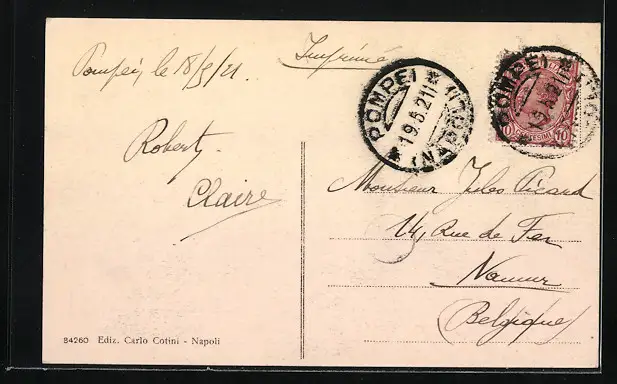 Pompei, le 18/5/21
Imprimé
Robert.
Claire
POMPEI
19.5.21
(NAPOLI)
POMPEI
19.5.21
10 CENTESIMI 10
Monsieur Jules Picard
14, Rue de Fer
Namur
(Belgique)
84260 Ediz. Carlo Cotini - Napoli